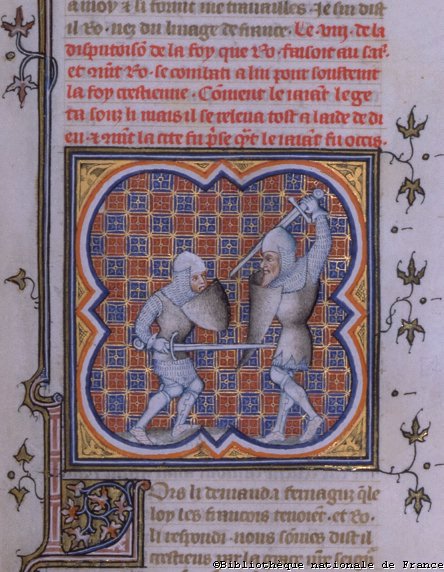 a moy & li souint me travailles. Je sui dist
il Ro. nez du linage de france. Le viii. de la
disputoison de la foy que Ro. faisoit au Jaī.
et ꝯment Ro. se combati a lui pour soustenir
la foy crestienne. Coment le iaiant le ge
ta souz li mais il se releva tost a laide de di
eu. & ꝯment la cite fu p̄se & le iaiant fu occis.
Lors li demanda fernaguz q̄le
loy les francois tenoient. et Ro.
li respondi. nous somes dist il
crestiens par la grace
©Bibliothèque nationale de France